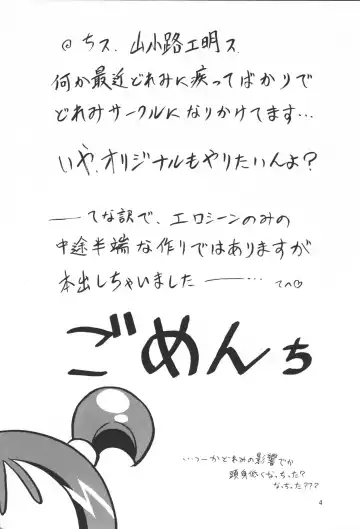 @ ちス. 山小路工明ス.
何か最近どれみに疾ってばかりで
どれみサークルになりかけてます…
いや、オリジナルもやりたいんよ?
――てな訳で、エロシーンのみの
中途半端な作りではありますが
本出しちゃいました――… てへ♡
ごめんち
いっつーかどれみの影響でか
頭身低くなっちった?
なっちった???
4